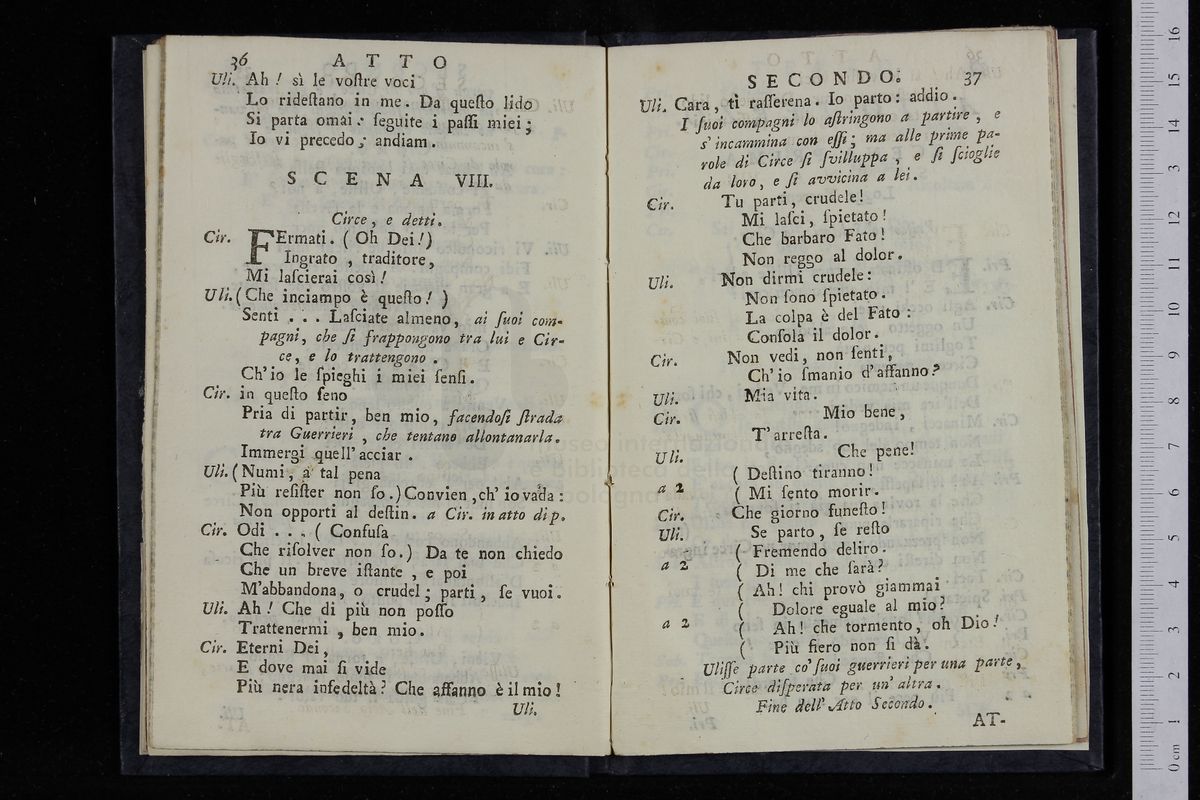 36 ATTO
Uli. Ah! sì le voſtre voci
Lo rideſtano in me. Da queſto lido
Si parta omai: ſeguite i paſſi miei;
Io vi precedo; andiam.
SCENA VIII.
Circe, e detti.
Cir. FErmati. (Oh Dei!)
Ingrato, traditore,
Mi laſcierai così!
Uli. (Che inciampo è queſto!)
Senti... Laſciate almeno, ai ſuoi com-
pagni, che ſi frappongono tra lui e Cir-
ce, e lo trattengono.
Ch'io le ſpieghi i miei ſenſi.
Cir. in queſto ſeno
Pria di partir, ben mio, facendoſi ſtrada
tra Guerrieri, che tentano allontanarla.
Immergi quell'acciar.
Uli. (Numi, a tal pena
Più reſiſter non ſo.) Convien, ch'io vada:
Non opporti al deſtin. a Cir. in atto di p.
Cir. Odi... (Confuſa
Che riſolver non ſo.) Da te non chiedo
Che un breve iſtante, e poi
M'abbandona, o crudel; parti, ſe vuoi.
Uli. Ah! Che di più non poſſo
Trattenermi, ben mio.
Cir. Eterni Dei,
E dove mai ſi vide
Più nera infedeltà? Che affanno è il mio!
Uli.
SECONDO. 37
Uli. Cara, ti raſſerena. Io parto: addio.
I ſuoi compagni lo aſtringono a partire, e
s'incammina con eſſi; ma alle prime pa-
role di Circe ſi ſvilluppa, e ſi ſcioglie
da loro, e ſi avvicina a lei.
Cir. Tu parti, crudele!
Mi laſci, ſpietato!
Che barbaro Fato!
Non reggo al dolor.
Uli. Non dirmi crudele:
Non ſono ſpietato.
La colpa è del Fato:
Conſola il dolor.
Cir. Non vedi, non ſenti,
Ch'io ſmanio d'affanno?
Uli. Mia vita.
Cir. Mio bene,
T'arreſta.
Uli. Che pene!
( Deſtino tiranno!
a 2 ( Mi ſento morir.
Cir. Che giorno funeſto!
Uli. Se parto, ſe reſto
( Fremendo deliro.
a 2 ( Di me che ſarà?
( Ah! chi provò giammai
( Dolore eguale al mio?
a 2 ( Ah! che tormento, oh Dio!
( Più fiero non ſi dà.
Uliſſe parte co' ſuoi guerrieri per una parte,
Circe diſperata per un' altra.
Fine dell' Atto Secondo.
AT-